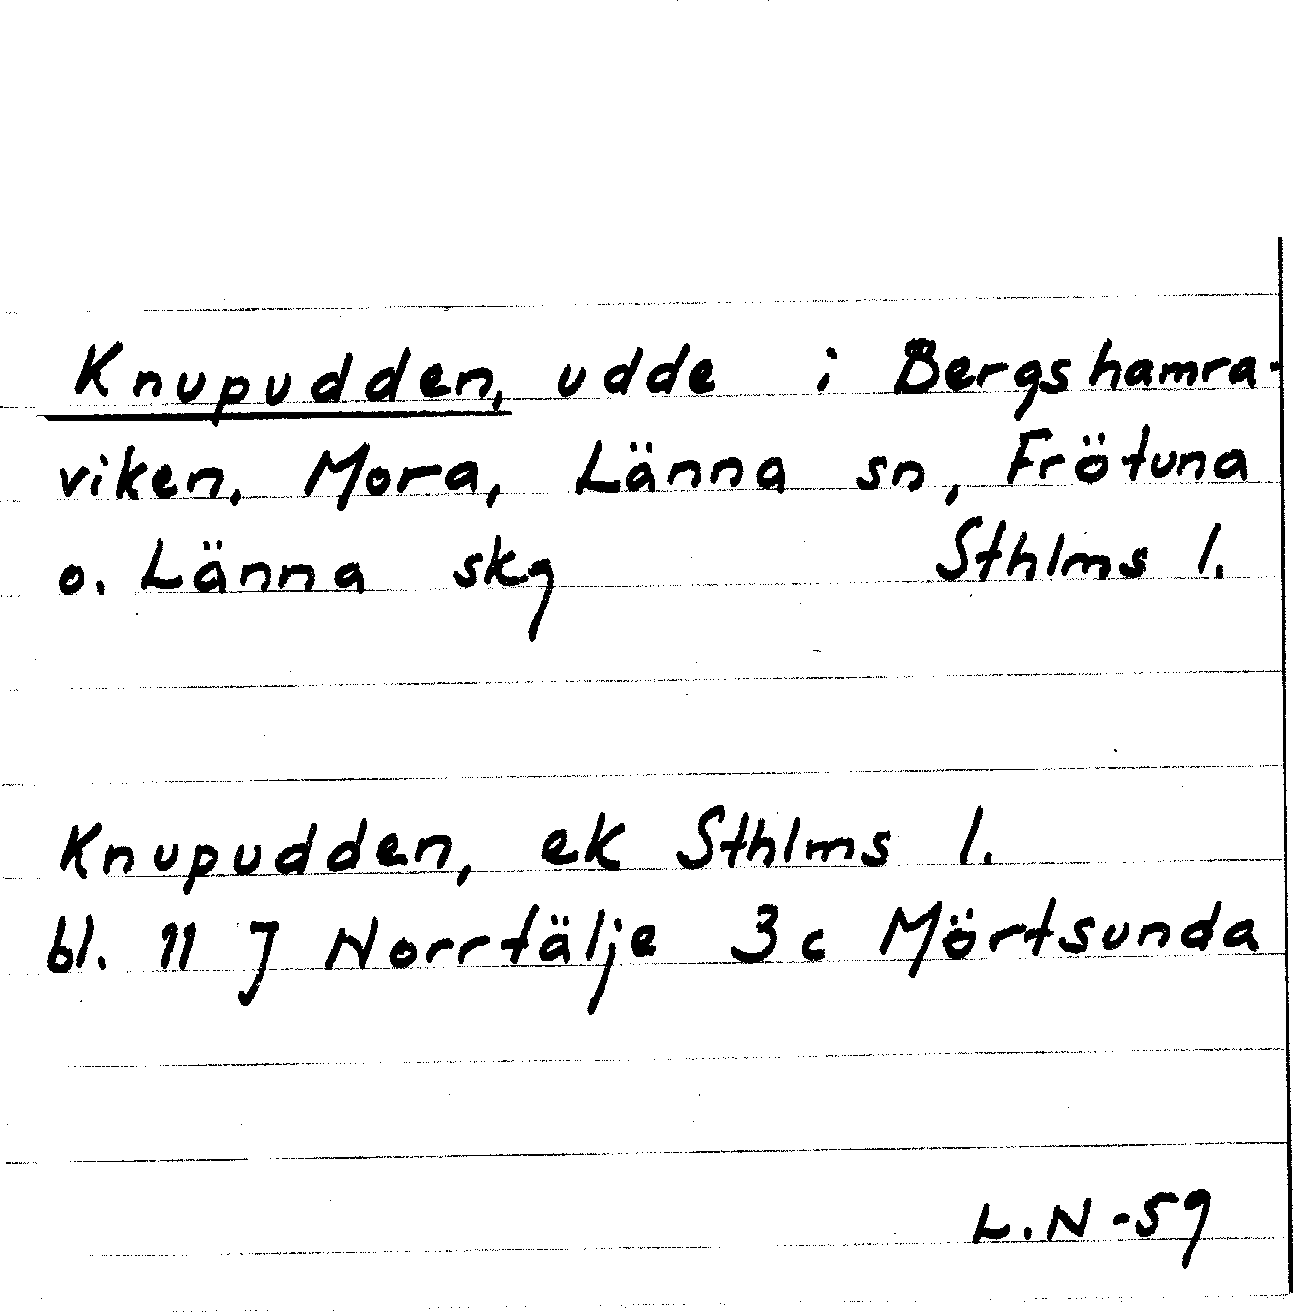 Knupudden, udde i Bergshamra-
viken, Mora, Länna sn, Frötuna
o. Länna skg Sthlms l.
Knupudden, ek Sthlms l.
bl. 11 J Norrtälje 3c Mörtsunda
L.N -59